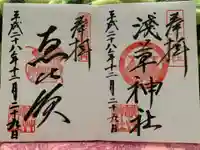 奉拝
浅草神社
平成二十八年十二月二十九日
奉拝
恵比須
平成二十八年十二月二十九日